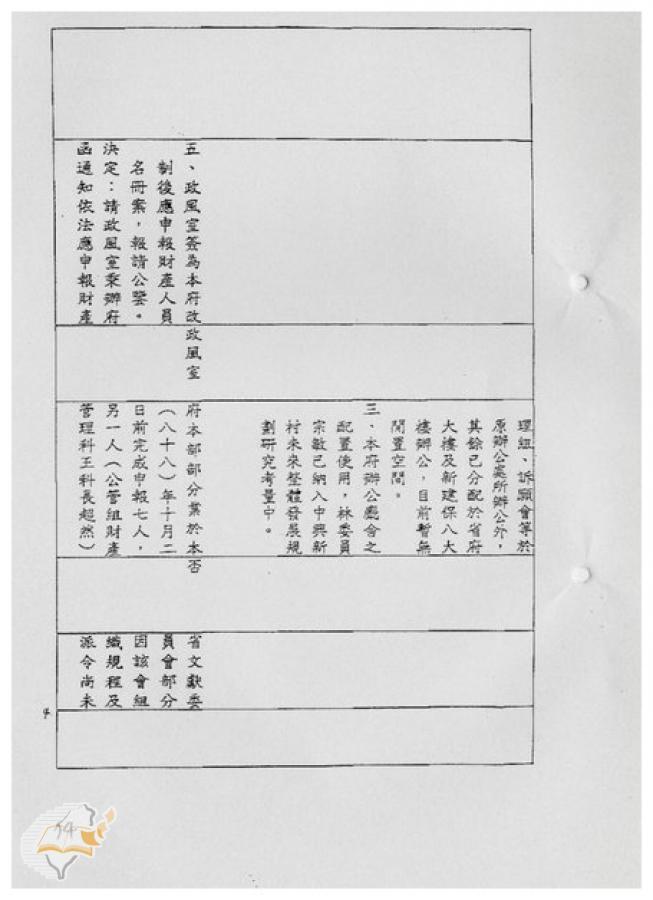 理組、訴願會等於
原辦公處所辦公外，
其餘已分配於省府
大樓及新建保八大
樓辦公，目前暫無
閒置空間。
三、本府辦公廳舍之
配置使用，林委員
宗敏已納入中興新
村未來整體發展規
劃研究考量中。
五、政風室簽為本府改
制後應申報財產人員
名冊案，報請公鑒。
決定：請政風室秉辦府
函通知依法應申報財產
政風室
府本部部分業於本
（八十八）年十月二
日前完成申報七人，
另一人（公管組財產
管理科王科長超然）
否
省文獻委
員會部分
因該會組
織規程及
派令尚未
4
54